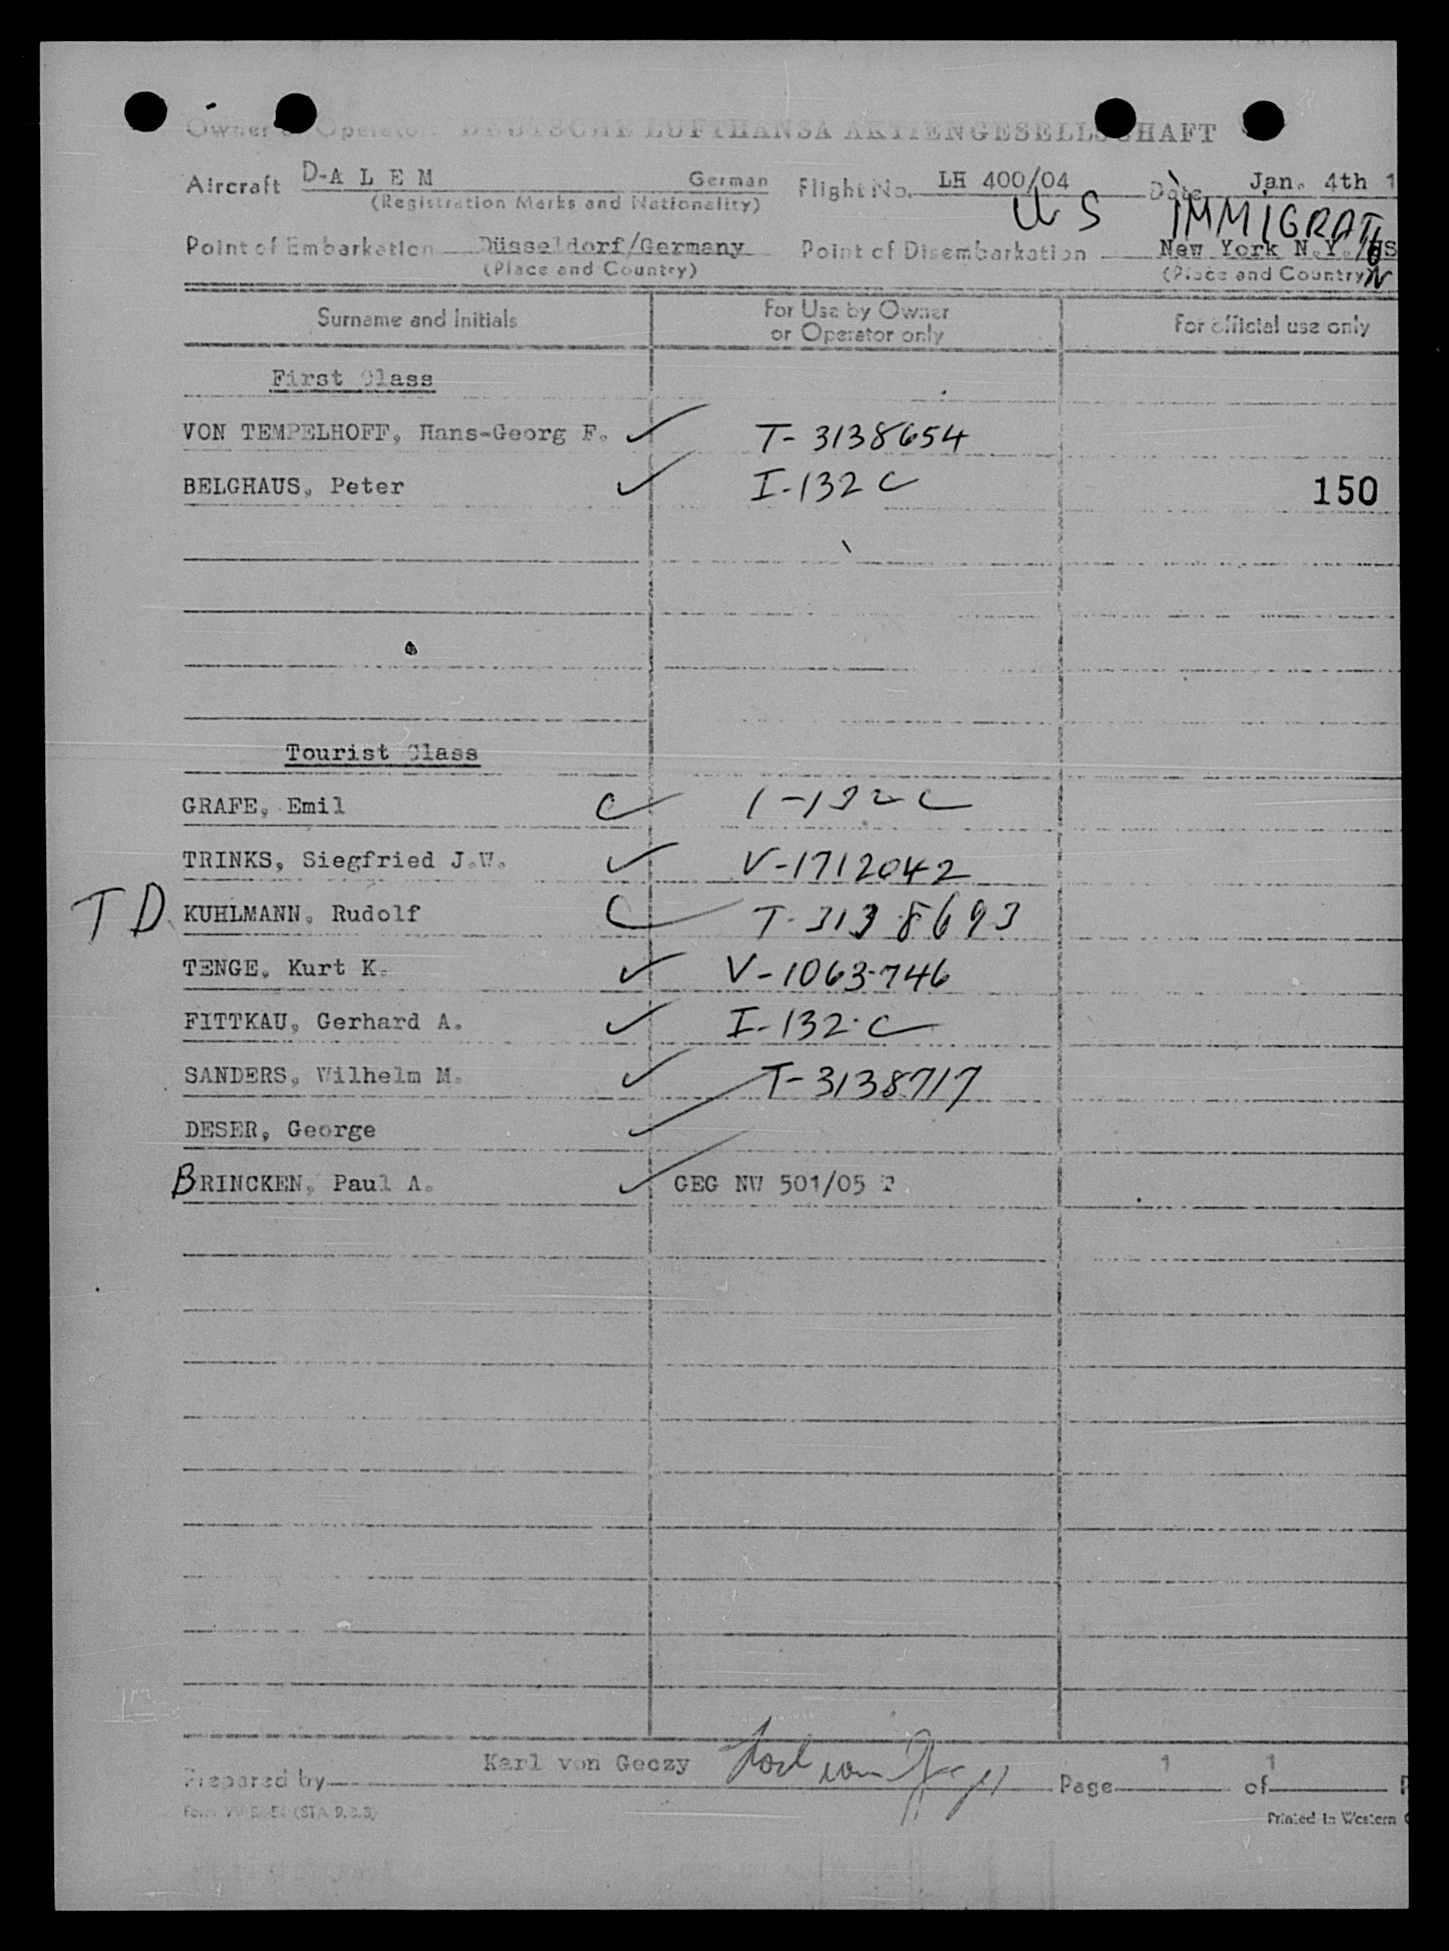 Owner or Operator DEUTSCHE LUFTHANSA AKTIENGESELLSCHAFT
Aircraft D-A L E M German Flight No. LH 400/04 Date Jan. 4th 1
(Registration Marks and Nationality)
US IMMIGRATION
Point of Embarkation Düsseldorf/Germany Point of Disembarkation New York N.Y./US
(Place and Country) (Place and Country)
Surname and Initials For Use by Owner or Operator only For official use only
First Class
VON TEMPELHOFF, Hans-Georg F. T-3138654
BELGHAUS, Peter I-132 C 150
Tourist Class
GRAFE, Emil C I-132 C
TRINKS, Siegfried J.W. V-1712042
TD KUHLMANN, Rudolf C T-3138693
TENGE, Kurt K. V-1063746
FITTKAU, Gerhard A. I-132-C
SANDERS, Wilhelm M. T-3138717
DESER, George
BRINCKEN, Paul A. GEG NW 501/05 T
Prepared by Karl von Geczy Karl von Geczy Page 1 of 1 P
Printed in Western G